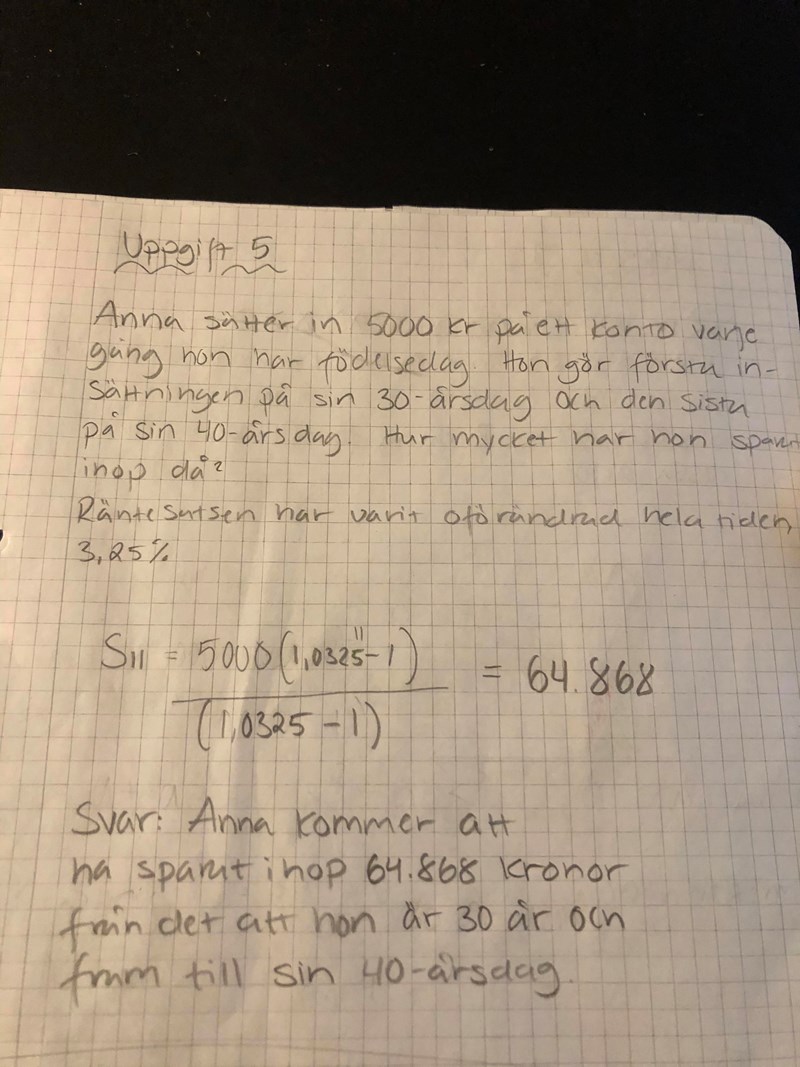 Uppgift 5
Anna sätter in 5000 kr på ett konto varje
gång hon har födelsedag. Hon gör första in-
sättningen på sin 30-årsdag och den sista
på sin 40-årsdag. Hur mycket har hon sparat
ihop då?
Räntesatsen har varit oförändrad hela tiden,
3,25%
S11 = 5000(1,0325^11-1) / (1,0325-1) = 64.868
Svar: Anna kommer att
ha sparat ihop 64.868 kronor
från det att hon är 30 år och
fram till sin 40-årsdag.